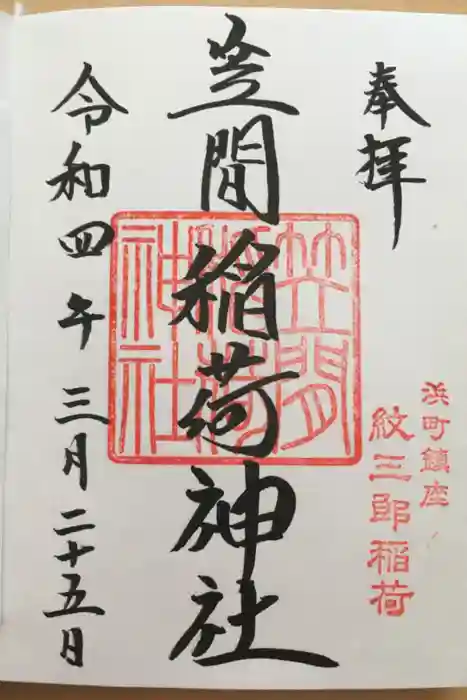 奉拝
浜町鎮座
紋三郎稲荷
笠間稲荷神社
笠間稲荷神社
令和四年三月二十五日